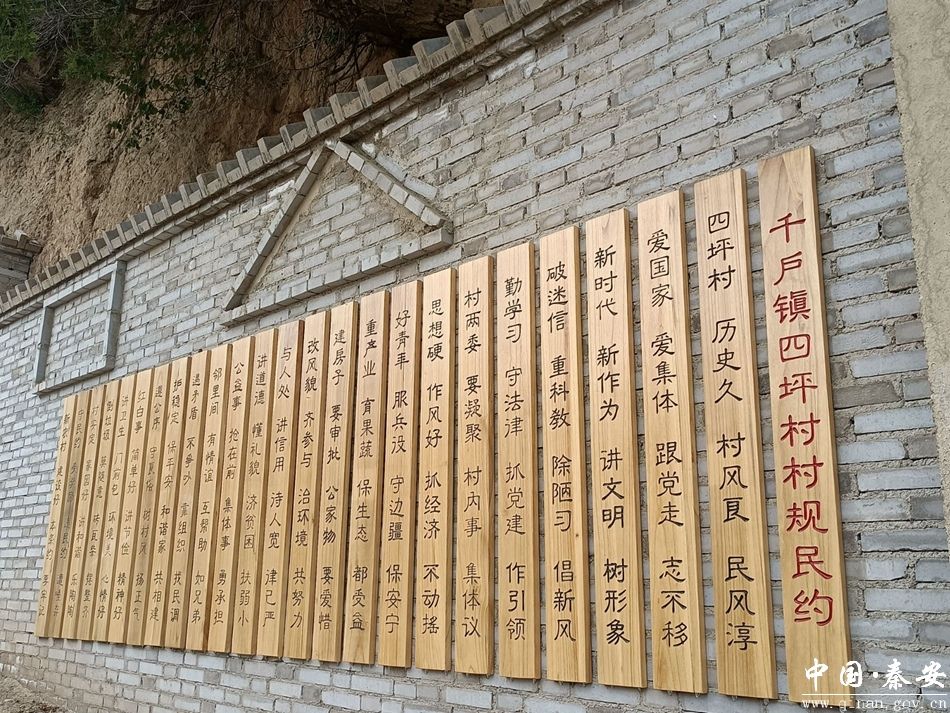 千户镇四坪村村规民约
四坪村 历史久 村风良 民风淳
爱国家 爱集体 跟党走 志不移
新时代 新作为 讲文明 树形象
破迷信 重科教 除陋习 倡新风
勤学习 守法律 抓党建 作引领
村两委 要凝聚 村内事 集体议
思想硬 作风好 抓经济 不动摇
好青年 服兵役 守边疆 保安宁
重产业 育果蔬 保生态 都受益
建房子 要审批 公家物 要爱惜
改风貌 齐参与 治环境 共努力
与人处 讲信用 待人宽 律己严
讲道德 懂礼貌 济贫困 扶弱小
公益事 抢在前 集体事 勇承担
邻里间 有情谊 互帮助 如兄弟
遇矛盾 不争吵 靠组织 找民调
护稳定 保平安 和谐家 共相建
遵公序 守良俗 树村风 扬正气
红白事 简单好 讲节俭
讲卫生 门前包 环境美 精神好
倒垃圾 心情好
中国·秦安
www.qinan.gov.cn